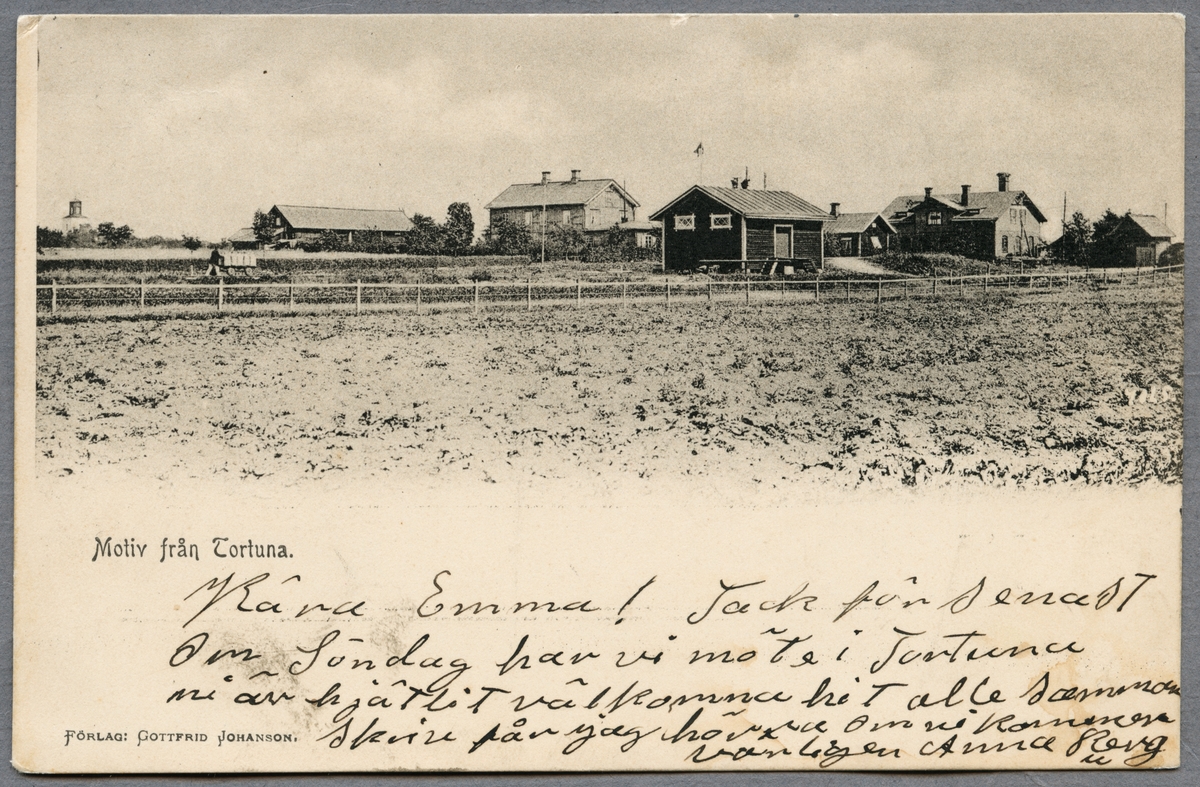 Motiv från Tortuna.
Kära Emma! Tack för senast
Om Söndag har vi möte i Tortuna
ni är hjätlit välkomna hit alle samman
Förlag: Gottfrid Johanson.
skriv får jag höra om ni kommer
vänligen Anna Berg